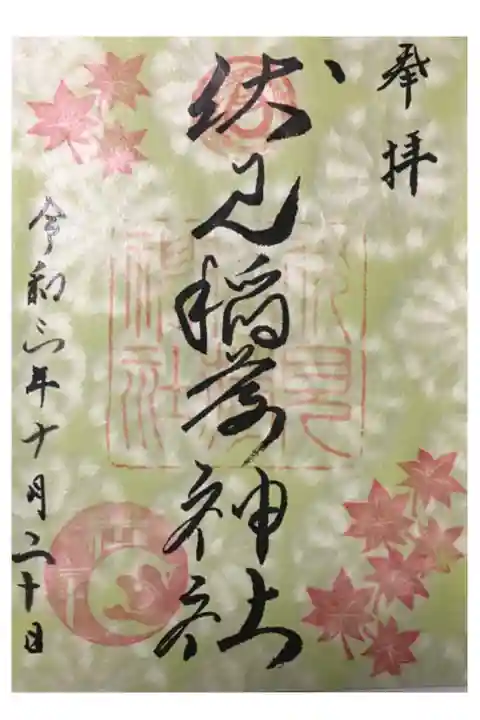 奉拝
伏見稲荷神社
伏見稲荷神社
令和六年十月二十日